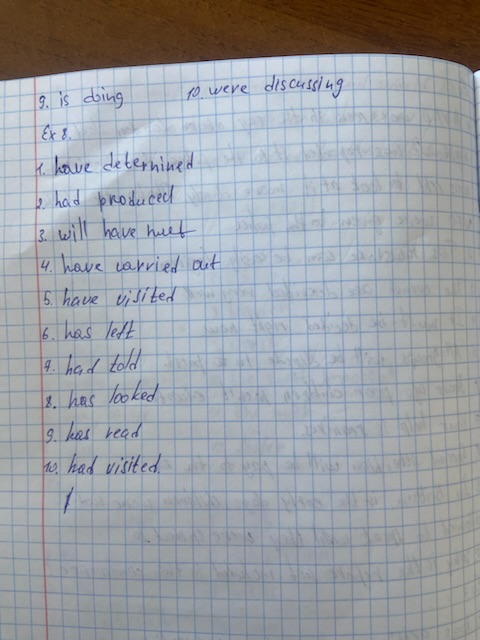 9. is doing 10. were discussing
Ex 8.
1. have determined
2. had produced
3. will have met
4. have carried out
5. have visited
6. has left
7. had told
8. has looked
9. has read
10. had visited.